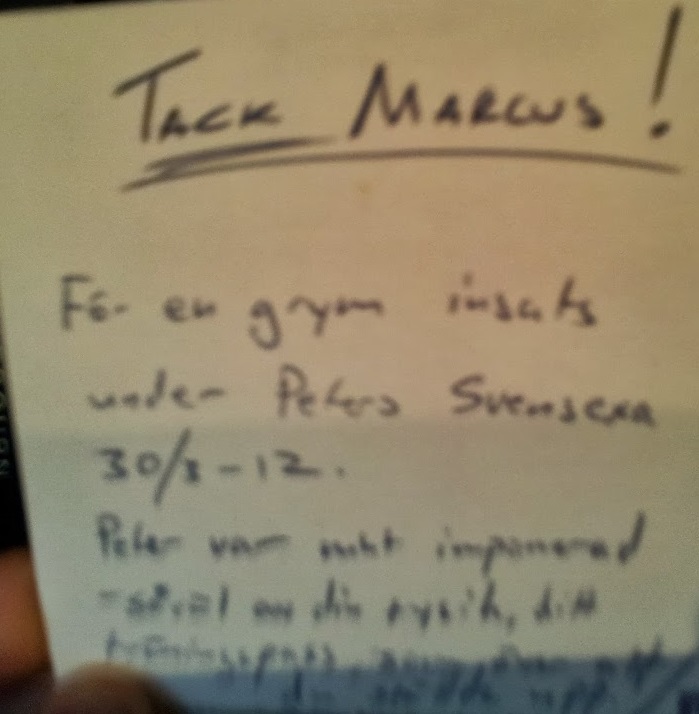 TACK MARCUS!
För en grym insats
under Peters Svensexa
30/3-12.
Peter var mkt imponerad
-såväl av din fysik, ditt